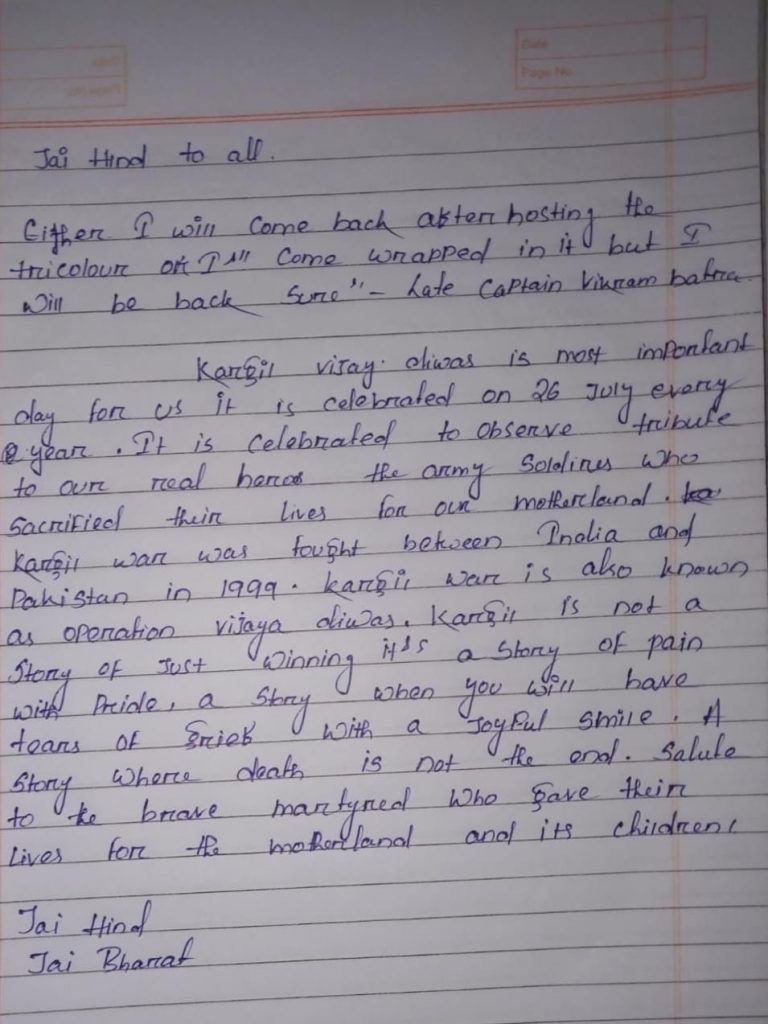 Date
Page No.
Jai Hind to all.
Either I will come back after hosting the
tricolour or I'll come wrapped in it but I
will be back sure" - Late Captain Vikram batra
Kargil vijay diwas is most important
day for us it is celebrated on 26 July every
year. It is celebrated to observe tribute
to our real heros the army soldires who
sacrified their lives for our motherland.
Kargil war was fought between India and
Pakistan in 1999. Kargil war is also known
as operation vijaya diwas. Kargil is not a
story of just winning it's a story of pain
with pride, a story when you will have
tears of grief with a joyful smile. A
story where death is not the end. Salute
to the brave martyred who gave their
lives for the motherland and its children!
Jai Hind
Jai Bharat